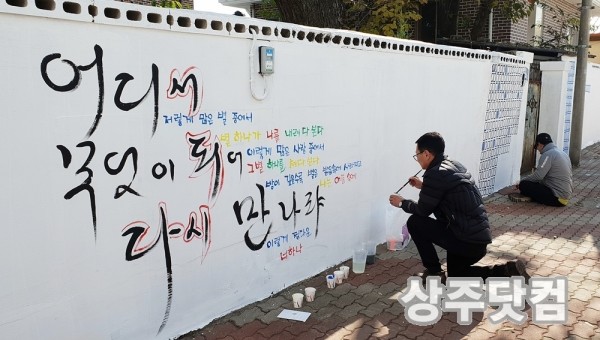 어디서
무엇이 되어
다시 만나랴
저렇게 많은 별 중에서
별 하나가 나를 내려다 본다
이렇게 많은 사람 중에서
그 별 하나를 쳐다 본다
밤이 깊을수록 별은 밝음속에 사라지고
나는 어둠 속에
이렇게 정다운
너하나
상주닷컴